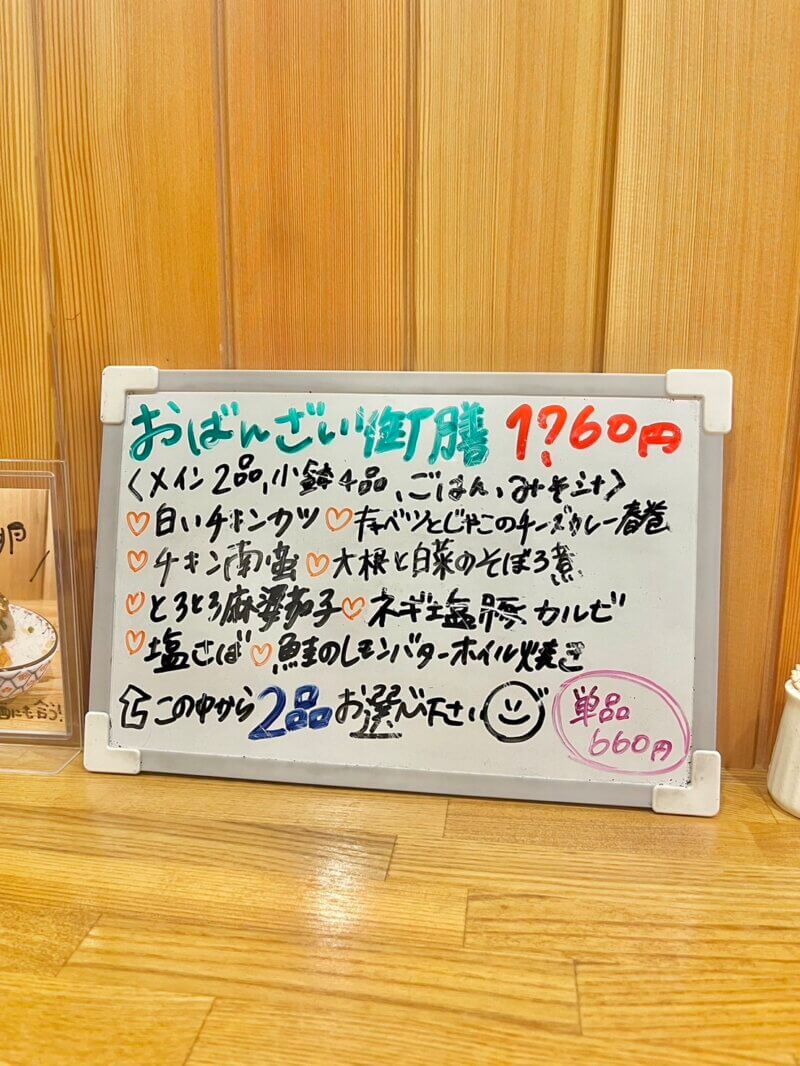 おばんざい御膳 1760円
〈メイン2品、小鉢4品、ごはん、みそ汁〉
♡白いチキンカツ ♡キャベツとじゃこのチーズカレー春巻
♡チキン南蛮 ♡大根と白菜のそぼろ煮
♡とろとろ麻婆茄子 ♡ネギ塩豚カルビ
♡塩さば ♡鮭のレモンバターホイル焼き
この中から2品お選び下さい
単品
660円
卵
にも合う!